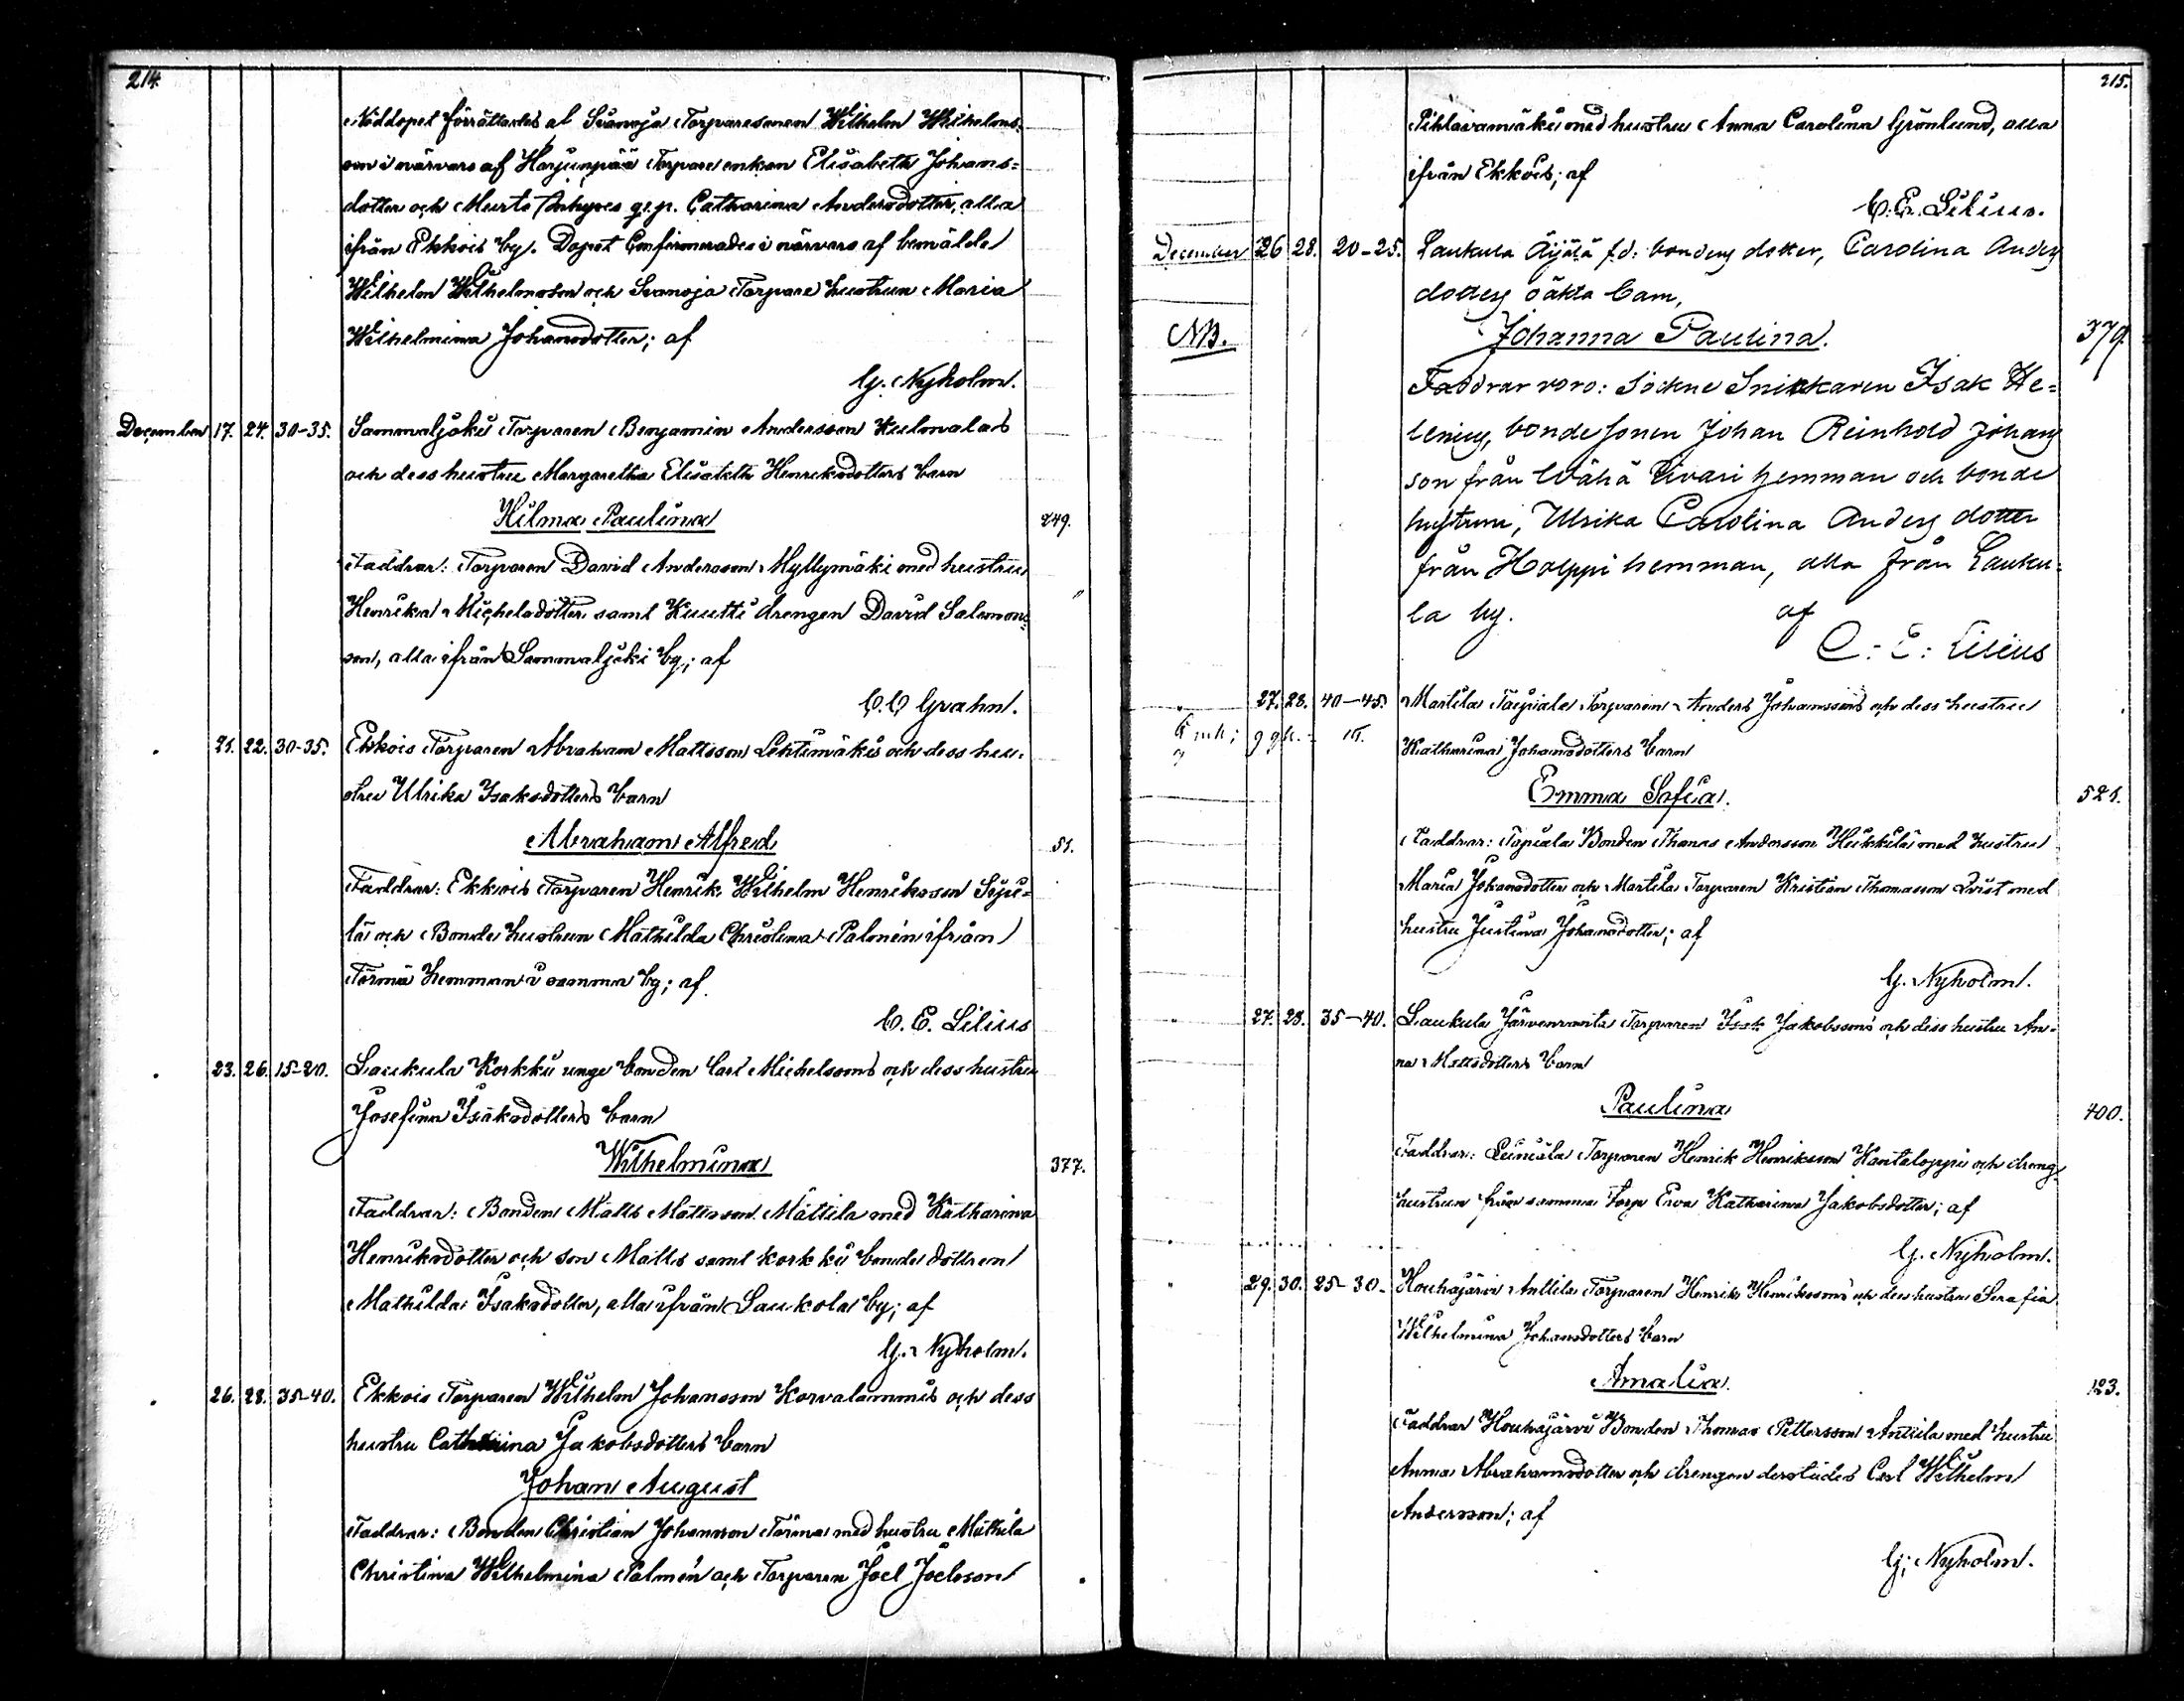 214.
Nöddopet förrättades af Svanoja Torparesonen Wilhelm Wilhelms-
son i närvaro af Harjunpää Torpare enkan Elisabeth Johans=
dotter och Murto Inhyses gg.p. Catharina Andersdotter, alla
ifrån Ekkois by. Dopet Confirmerades i närvaro af bemälde
Wilhelm Wilhelmsson och Svanoja Torpare hustrun Maria
Wilhelmina Johansdotter; af
G. Nyholm.
December 17. 24. 30-35. Sammaljoki Torparen Benjamin Andersson Kulmalas
och dess hustru Margaretha Elisabeth Henriksdotters barn
Hilma Paulina 249.
Faddrar: Torparen David Andersson Myllymäki med hustru
Henrika Michelsdotter samt Kuutti drengen David Salomons-
son, alla ifrån Sammaljoki by; af
C.O Grahn.
21. 22. 30-35. Ekkois Torparen Abraham Mattsson Lehtimäkis och dess hu-
stru Ulrika Isaksdotters barn
Abraham Alfred 51.
Faddrar: Ekkois Torparen Henrik Wilhelm Henriksson Sipi-
lä och Bonde hustrun Mathilda Christina Palmén ifrån
Törmä hemman i samma by; af
C. E. Lilius
23. 26. 15-20. Laukula Korkku unge bonden Carl Michelssons och dess hustru
Josefina Isaksdotters barn
Wilhelmina 377.
Faddrar: Bonden Matts Mattsson Mattila med Katharina
Henriksdotter och son Matts samt korkku bonde dottren
Mathilda Isaksdotter, alla ifrån Laukola by; af
G. Nyholm.
26. 28. 35-40. Ekkois Torparen Wilhelm Johansson Korvalammis och dess
hustru Catharina Jakobsdotters barn
Johan August
Faddrar: Bonden Christian Johansson Törmä med hustru Mathila
Christina Wilhelmina Palmén och Torparen Joel Joelsson
215.
Pihlavamäki med hustru Anna Carolina Grönlund, alla
ifrån Ekkois; af
C. E. Lilius.
December 26 28. 20-25. Laukula Äijälä f.d. bondens dotter, Carolina Anders
dotters oäkta barn,
NB. Johanna Paulina. 379.
Faddrar voro: Sockne Snickaren Isak He=
lenius, bonde sonen Johan Reinhold Johans
son från Wähä Uvari hemman och bonde
hustrun, Ulrika Carolina Anders dotter
från Holppi hemman, alla från Lauku-
la by. af
C: E: Lilius
27. 28. 40-45. Martila Taipiala Torparen Anders Johanssons och dess hustru
Katharina Johansdotters barn
Emma Sofia. 521.
Faddrar: Topiala Bonden Thomas Andersson Heikkilä med hustru
Maria Johansdotter och Martila Torparen Kristian Thomasson Qvist med
hustru Justina Johansdotter; af
G. Nyholm.
27. 28. 35-40. Laukula Järvenranta Torparen Isak Jakobssons och dess hustru An-
na Mattsdotters barn
Paulina 400.
Faddrar: Torparen Henrik Henriksson Kantaloppi och dreng-
hustrun från samma torp Eva Katharina Jakobsdotter; af
G. Nyholm.
29. 30. 25-30. Houhajärvi Anttila Torparen Henrik Henrikssons och dess hustru Serafia
Wilhelmina Johansdotters barn
Amalia. 123.
Faddrar Houhajärvi Bonden Thomas Pettersson Anttila med hustru
Anna Abrahamsdotter och drengen derstädes Carl Wilhelm
Andersson; af
G. Nyholm.